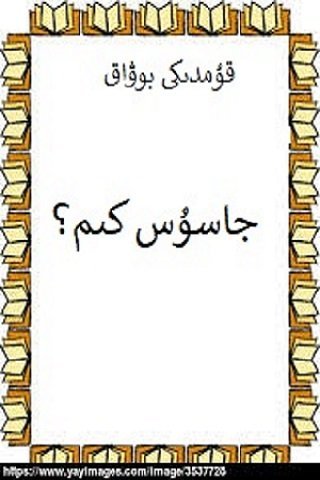 قۇمدىكى بوۋاق
جاسۇس كىم؟
https://www.yayimages.com/image/3537728